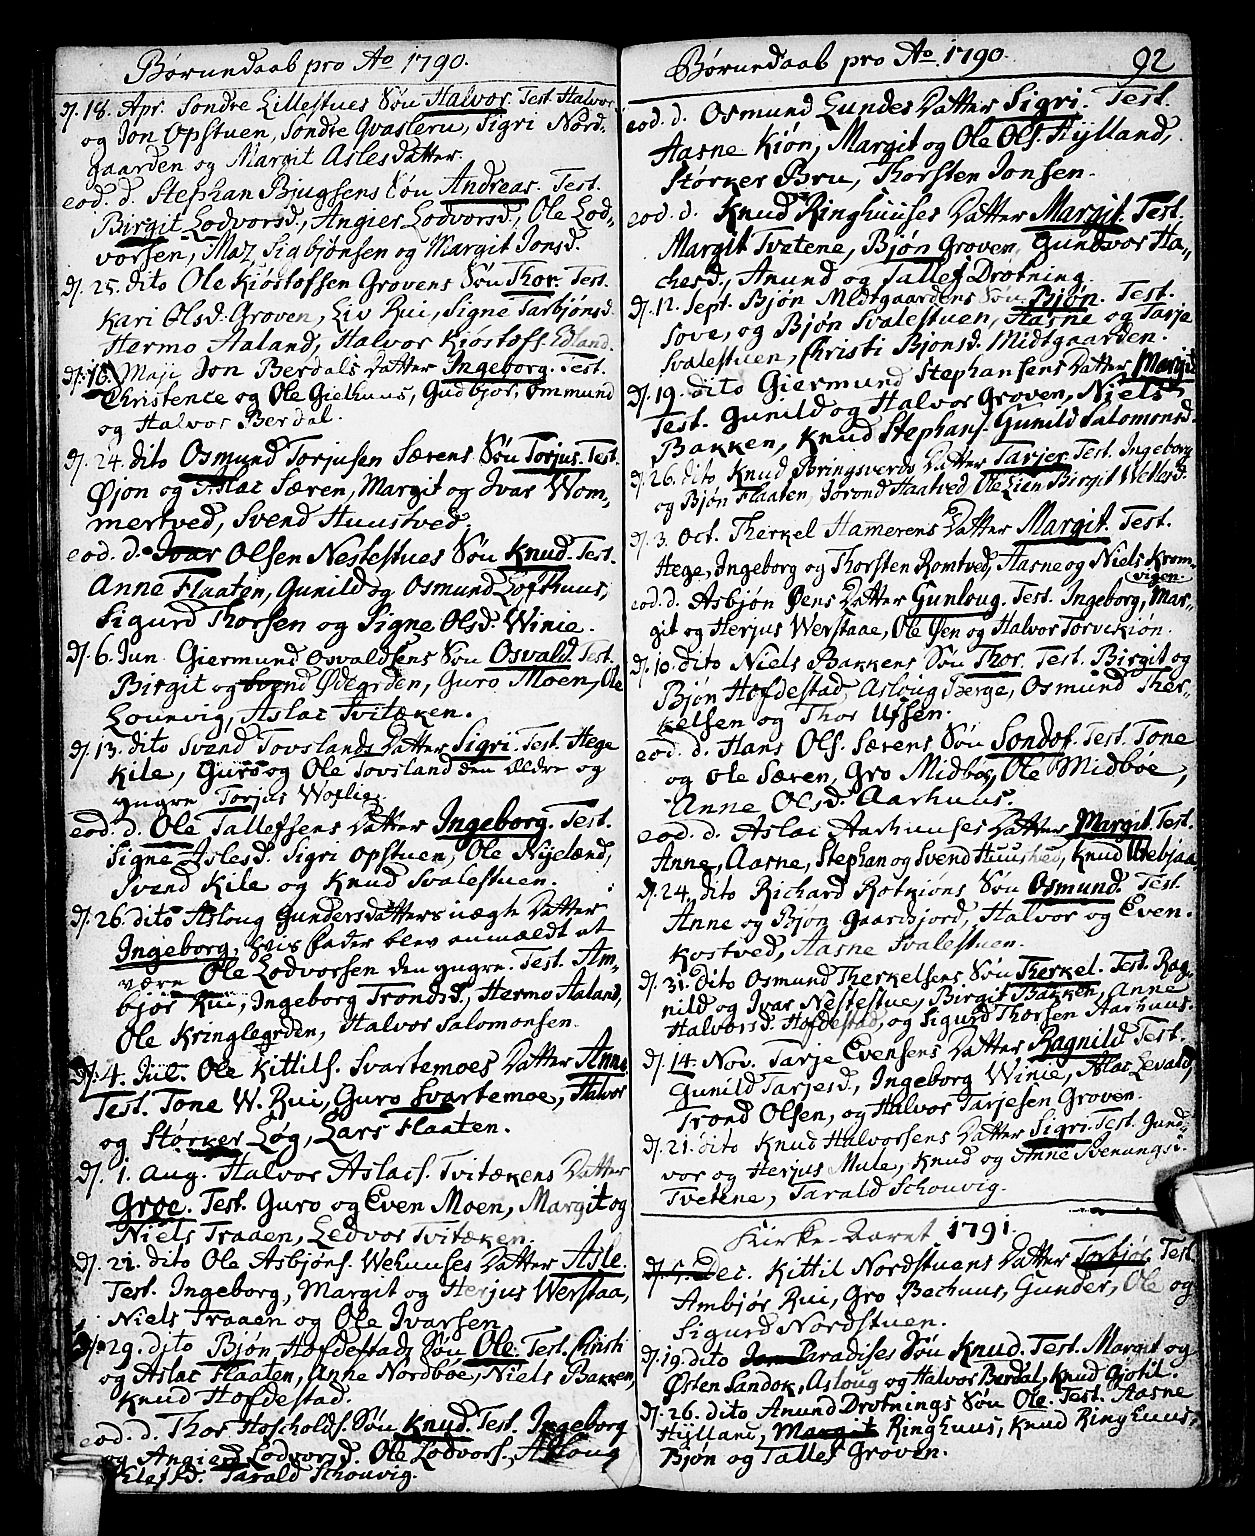 Børnedaab pro Ao 1790.
d. 18. Apr. Sondre Lillestues Søn Halvor. Test. Halvor
og Jon Opstuen, Sondre Qvasleru, Sigri Nord-
gaarden og Margit Aslesdatter.
eod. d. Stephan Bjugsens Søn Andreas. Test.
Birgit Lodvorsd., Angier Lodvorsd., Ole Lod-
vorsen, Maz Sigbjønsen og Margit Jonsd.
d. 25. dito Ole Kiøstofsen Grovens Søn Thor. Test.
Kari Olsd. Groven, Liv Rui, Signe Tarbjønsd.
Hermo Aaland, Halvor Kiøstofs. Edland.
d. 16. Maji Jon Berdals Datter Ingeborg. Test.
Christence og Ole Gielhuus, Gudbjor, Ommund
og Halvor Berdal.
d. 24. dito Osmund Torjusen Særens Søn Torjus. Test.
Øjon og Aslac Særen, Margit og Ivar Wom-
mertved, Svend Huustved.
eod. d. Ivar Olsen Nestestues Søn Knud. Test.
Anne Flaaten, Gunild og Osmund Lofthuus,
Sigurd Thorsen og Signe Olsd. Winie.
d. 6. Jun. Giermund Osvaldsens Søn Osvald. Test.
Birgit og Svend Ødegrden, Guro Moen, Ole
Lounvig, Aslac Tvitæken.
d. 13. dito Svend Tovslands Datter Sigri. Test. Hege
Kile, Guro og Ole Tovsland den Ældre og
yngre, Torjus Woflie.
eod. d. Ole Tallefsens Datter Ingeborg. Test.
Signe Aslesd. Sigri Opstuen, Ole Nyelænd,
Svend Kile og Knud Svalestuen.
d. 26. dito Asloug Gundersdatters uægte Datter
Ingeborg, hvis Fader blev anmældt at
være Ole Lodvorsen den yngre. Test. Am-
bjør Rui, Ingeborg Trondsd., Hermo Aaland,
Ole Kringlegrden, Halvor Salomonsen.
d. 4. Jul. Ole Kittils. Svartemoes Datter Anne
Test. Tone W. Rui, Guro Svartemoe, Halvor
og Størker Løg, Lars Flaaten.
d. 1. Aug. Halvor Aslacs. Tvitækens Datter
Groe. Test. Guro og Even Moen, Margit og
Niels Traaen, Ledvor Tvitæken.
d. 22. dito Ole Asbjøns. Wehuuses Datter Asle.
Test. Ingeborg, Margit og Herjus Werstaa,
Niels Traaen og Ole Ivarsen
d. 29. dito Bjøn Hofdestads Søn Ole. Test. Christi
og Aslac Flaaten, Anne Nordbøe, Niels Bakken,
Knud Hofdestad.
eod. d. Thor Hoscholds. Søn Knud. Test. Ingeborg
og Angierd Lodvorsd. Ole Lodvors., Asloug
Tarald Schouvig.
Børnedaab pro Ao 1790. 92
eod. d. Osmund Lundes Datter Sigri. Test.
Aasne Kiøn, Margit og Ole Ols. Hylland,
Størker Bru, Thorsten Jonsen.
eod. d. Knud Ringhuuses Datter Margit. Test.
Margit Tvetene, Bjøn Groven, Gundvor Ha-
chesd., Anund og Tallef Drotning.
d. 12. Sept. Bjøn Midtgaardens Søn Bjøn. Test.
Sove, og Bjøn Svalestuen, Aasne og Tarje
Svalestuen, Christi Bjønsd. Midtgaarden.
d. 19. dito Giermund Stephansens Datter Margit
Test. Gunild og Halvor Groven, Niels
Bakken, Knud Stephans. Gunild Salomonsd.
d. 26. dito Knud Bringsverds Datter Tarjer. Test. Ingeborg
og Bjøn Flaaten, Jorond Haatved, Ole Lien Birgit Wetlesd.
d. 3. Oct. Therkel Hamerens Datter Margit. Test.
Hege, Ingeborg og Thorsten Romtved, Aasne og Niels Krom-
vigen.
eod. d. Asbjøn Øens Datter Gunloug. Test. Ingeborg, Mar-
git og Herjus Werstaae, Ole Øen og Halvor Torvekiøn.
d. 10. dito Niels Bakkens Søn Thor. Test. Birgit og
Bjøn Hofdestad, Asloug Berge, Osmund Ther-
kelsen og Thor Ufsen.
eod. d. Hans Ols. Særens Søn Sondof. Test. Tone
og Ole Særen, Gro Midbøe, Ole Midboe,
Anne Olsd. Aarhuus.
eod. d. Aslac Aarhuuses Datter Margit. Test.
Anne, Aasne, Stephan og Svend Huustved, Knud
d. 24. dito Richard Rotkiøns Søn Osmund. Test.
Anne og Bjøn Gaardsjord, Halvor og Even
Kostved, Aasne Svalestuen.
d. 31. dito Osmund Therkelsens Søn Therkel. Test. Rag-
nild og Ivar Nestestue, Birgit Bakken, Anne
Halvorsd. Hofdestad, og Sigurd Thorsen Aarhuus.
d. 14. Nov. Tarje Evensens Datter Ragnild. Test.
Gunild Tarjesd., Ingeborg Winie, Aslac Levald,
Trond Olsen, og Halvor Tarjesen Groven.
d. 21. dito Knud Halvorsens Datter Sigri. Test. Gund-
vor og Herjus Mule, Knud og Anne Svenungs.
Tvetene, Tarald Schouvig.
Kirke-Aaret 1791.
d. 5. Dec. Kittil Nordstuens Datter Torbjør. Test.
Ambjør Rui, Gro Bechuus, Gunder, Ole og
Sigurd Nordstuen.
d. 19. dito Paradises Søn Knud. Test. Margit og
Østen Sandok, Asloug og Halvor Berdal, Knud Gjotil.
d. 26. dito Anund Drotnings Søn Ole. Test. Aasne
Hylland, Margit Ringhuus, Knud Ringhuus,
Bjøn og Tallef Groven.